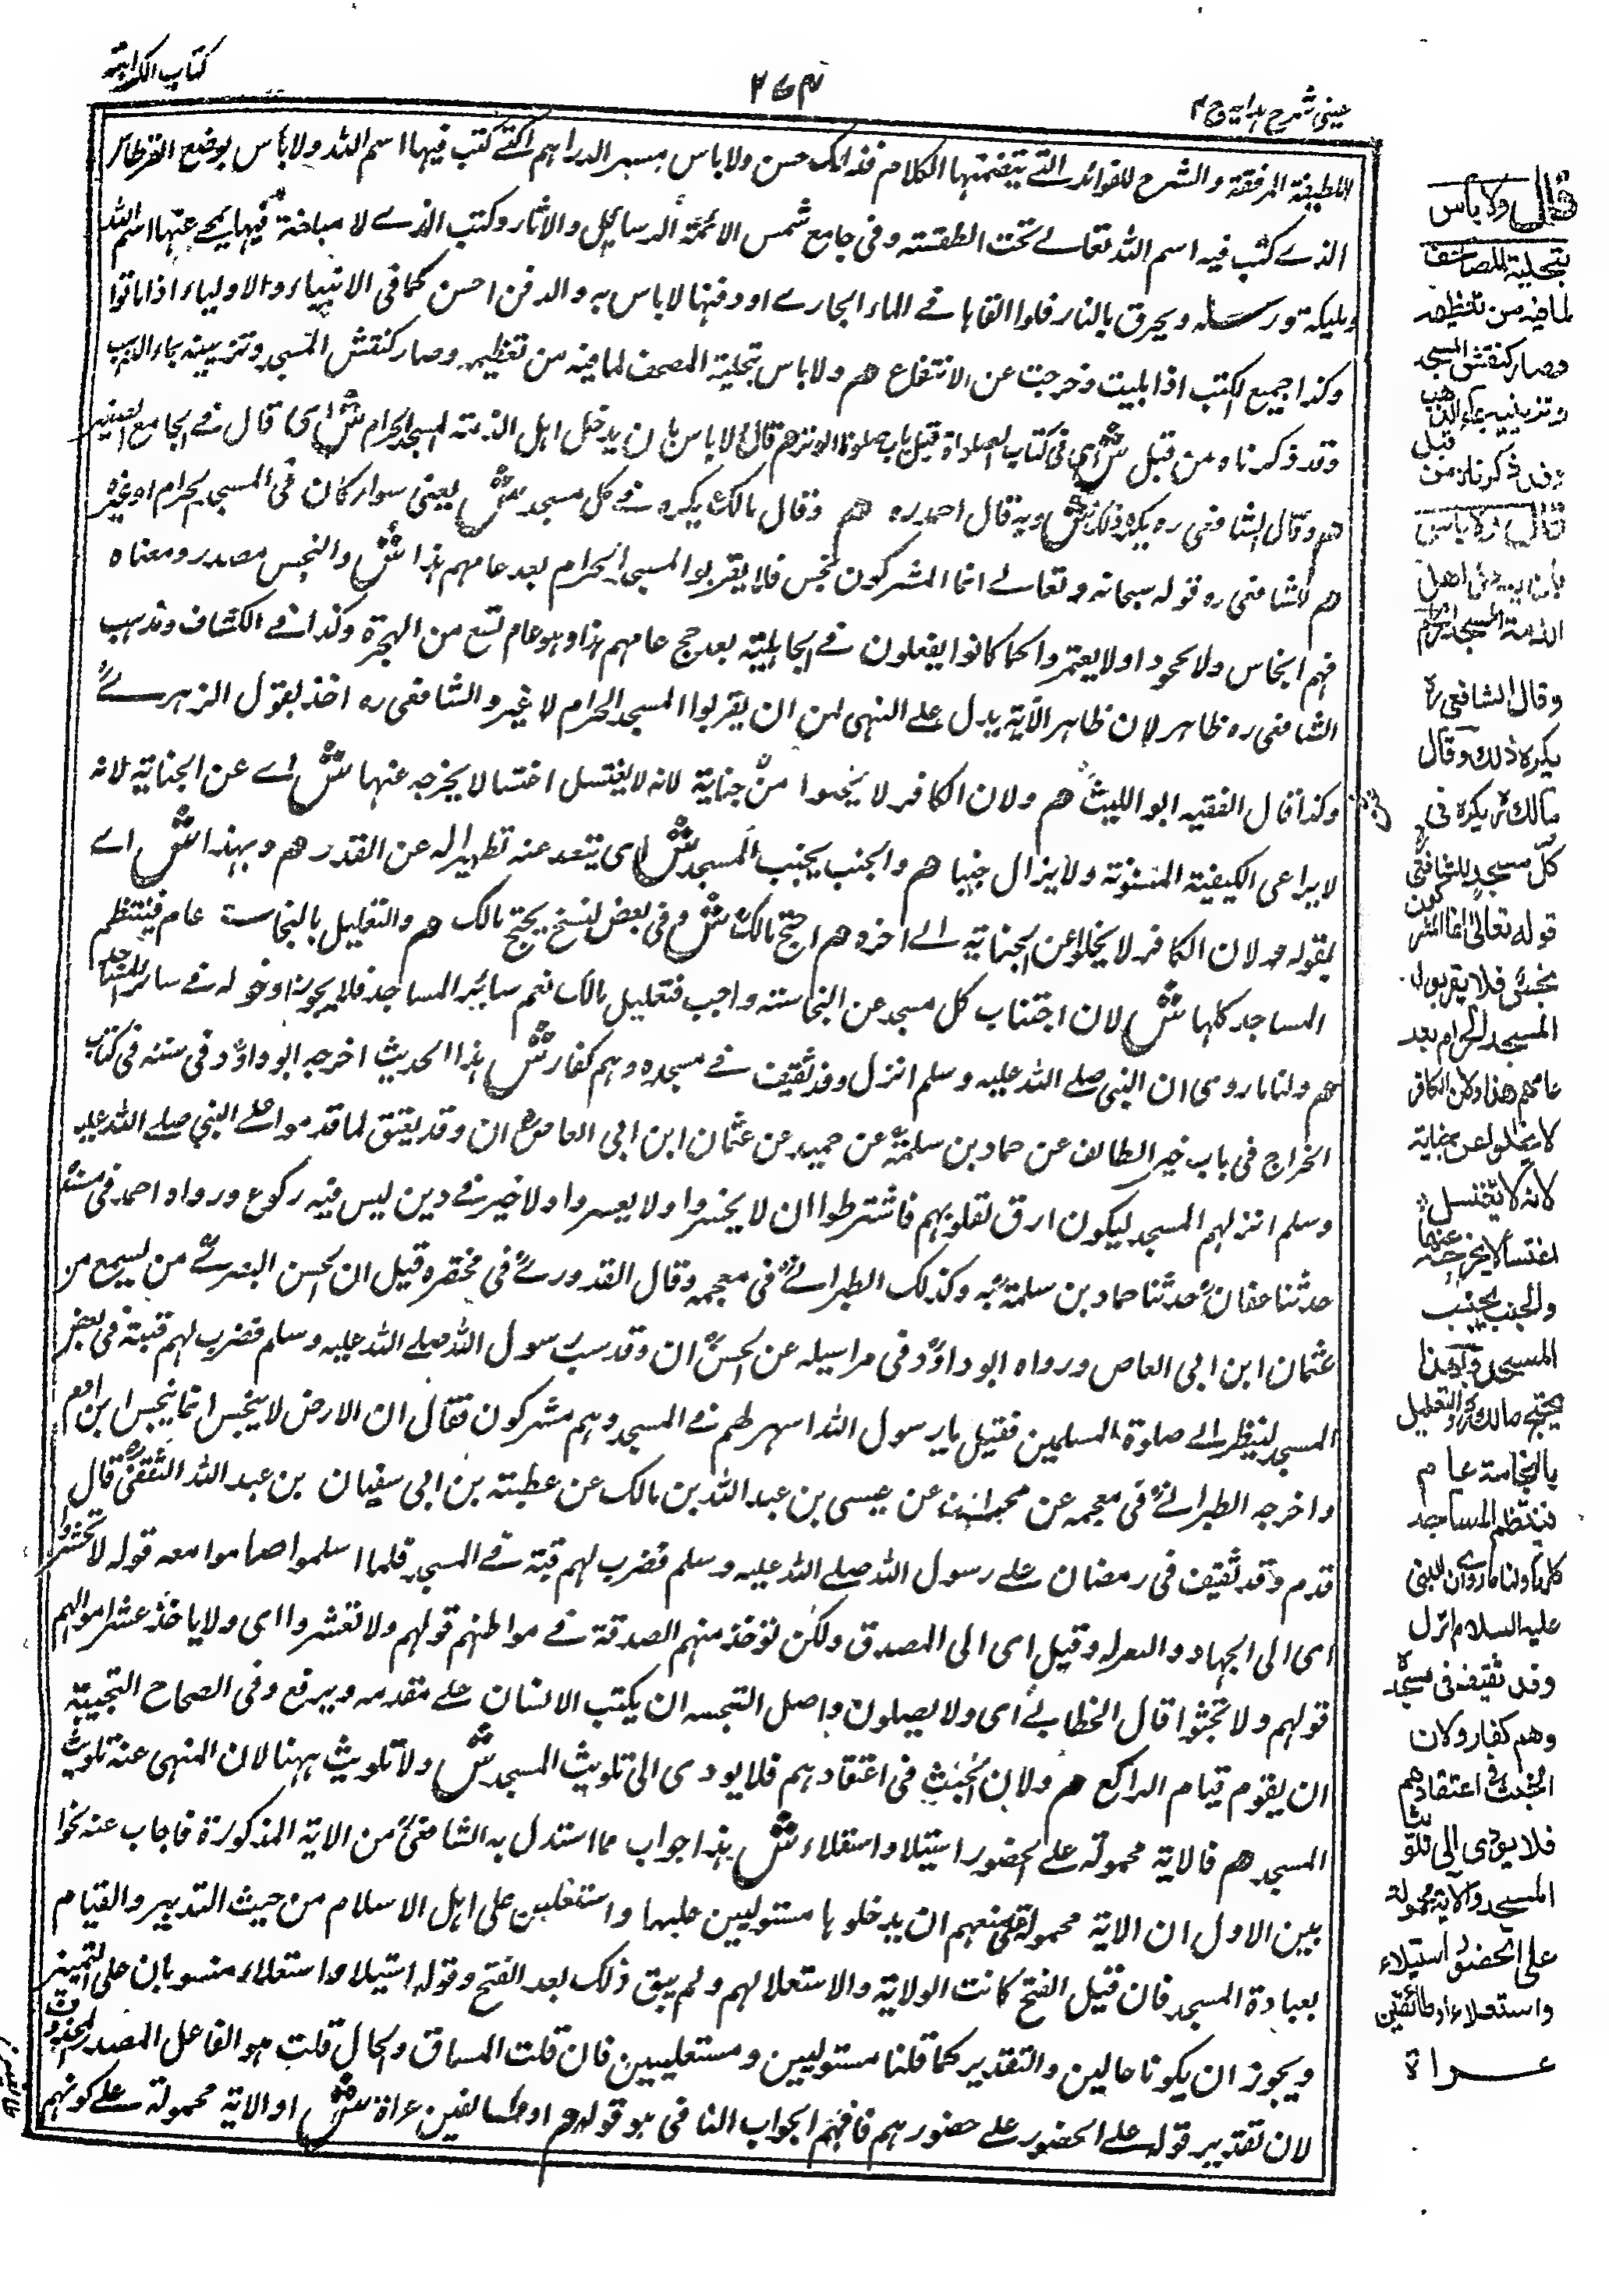 كتاب الكراهية
٢٧٤
عينى شرح هداية ج ٤
اللطيفة المرفقة والشرح للفوائد التے يتضمنها الكلام فذلك حسن ولا باس الدراهم التے كتب فيها اسم الله ولا باس بوضع القرطاس
الذے كتب فيه اسم الله تعالے تحت الطنفسة وفى جامع شمس الائمة الرسائل والاثار وكتب الذے لا منافعة فيها يمحے عنها اسم الله
وملئكته ورسله ويحرق بالنار فلو القاها فے الماء الجارے او دفنها لا باس به والدفن احسن كما فى الانبياء والاولياء اذا ماتوا
وكذا جميع الكتب اذا بليت وخرجت عن الانتفاع هم ولا باس بتحلية المصحف لما فيه من تعظيمه وصار كنقش المسجد وتزيينه بماء الذهب
وقد ذكرناه من قبل ش اى فى كتاب الصلوة قبيل باب صلوة الوتر هم قال ولا باس بان يدخل اهل الذمة المسجد الحرام ش اى قال فے الجامع الصغير
هم وقال الشافعى ره يكره ذلك ش وبه قال احمد ره هم وقال مالك يكره فے كل مسجد ش يعنى سواء كان فى المسجد الحرام او غيره
هم للشافعى ره قوله سبحانه وتعالے انما المشركون نجس فلا يقربوا المسجد الحرام بعد عامهم هذا ش والنجس مصدر ومعناه
فهم انجاس ولا يحجوا ولا يعتمروا كما كانوا يفعلون فے الجاهلية بعد حج عامهم هذا وهو عام تسع من الهجرة وكذا فے الكشاف ومذهب
الشافعى ره ظاهر لان ظاهر الآية يدل علے النهى لهن ان يقربوا المسجد الحرام لا غير والشافعى ره اخذ بقول الزهرے
وكذا قال الفقيه ابو الليث هم ولان الكافر لا يخلوا من جناية لانه لا يغتسل اغتسالا يخرجه عنها ش اے عن الجناية لانه
لا يراعى الكيفية المسنونة ولا يزال جنبا هم والجنب يجنب المسجد ش اى يتبعد عنه تطهيرا له عن القذر هم وبهذا ش اے
بقوله ولان الكافر لا يخلوا عن الجناية الے اخره هم احتج مالك ش وفى بعض النسخ يحتج مالك هم والتعليل بالنجاسة عام فينتظم
المساجد كلها ش لان اجتناب كل مسجد عن النجاسة واجب فتعليل مالك نعم سائر المساجد فلا يجوز دخوله فے سائر المساجد
هم ولنا ما روى ان النبى صلے الله عليه وسلم انزل وفد ثقيف فے مسجده وهم كفار ش هذا الحديث اخرجه ابو داود فى سننه فى كتاب
الخراج فى باب خبر الطائف عن حماد بن سلمة عن حميد عن عثمان ابن ابى العاص ان وفد ثقيف لما قدموا علے النبى صلے الله عليه
وسلم انزلهم المسجد ليكون ارق لقلوبهم فاشترطوا ان لا يحشروا ولا يعشروا ولا خير فے دين ليس فيه ركوع ورواه احمد فى مسنده
حدثنا عفان حدثنا حماد بن سلمة به وكذلك الطبرانے فى معجمه وقال القدورے فى مختصره قيل ان الحسن البصرے من يسمع من
عثمان ابن ابى العاص ورواه ابو داود فى مراسيله عن الحسن ان وفد رسول الله صلے الله عليه وسلم فضرب لهم قبة فى بعض
المسجد لينظر الے صلوة المسلمين فقيل يا رسول الله فے المسجد وهم مشركون فقال ان الارض لا ينجس انما ينجس ابن ادم
واخرجه الطبرانے فى معجمه عن محمد عن عيسى بن عبد الله بن مالك عن عطية بن ابى سفيان بن عبد الله الثقفى قال
قدم وفد ثقيف فى رمضان علے رسول الله صلے الله عليه وسلم فضرب لهم قبة فے المسجد فلما اسلموا صاموا معه قوله لا تحشروا
اى الى الجهاد وقيل اى الى المصدق ولكن تؤخذ منهم الصدقة فے مواطنهم قولهم ولا تعشروا اى ولا ياخذ عشر اموالهم
قولهم ولا تجثوا قال الخطابے اى ولا يصلون واصل التجبية ان يكتب الانسان علے مقدمه ويرفع وفى الصحاح التجبية
ان يقوم قيام الراكع هم ولان الخبث فى اعتقادهم فلا يودى الى تلويث المسجد ش ولا تلويث ههنا لان المنهى عنه تلويث
المسجد هم فالاية محمولة علے الحضور استيلاء واستعلاء ش هذا جواب مما استدل به الشافعى من الاية المذكورة فاجاب عنه
بين الاول ان الاية محمولة على منعهم ان يدخلوها مستوليين عليها واستعلين على اهل الاسلام من حيث التدبير والقيام
بعبادة المسجد فان قبل الفتح كانت الولاية والاستعلا لهم ولم يبق ذلك بعد الفتح وقوله استيلاء واستعلاء منسوبان على التميز
ويجوز ان يكونا حالين والتقدير كما قلنا مستوليين ومستعليين فان قلت المساق والحال قلت هو الفاعل المصدر
لان تقدير قوله علے الحضور علے حضورهم فافهم الجواب الثانى هو قوله هم او طائفين عراة ش او الاية محمولة علے كونهم
قال ولا باس
بتحلية المصاحف
لما فيه من تعظيمه
وصار كنقش المسجد
وتزيينه بماء الذهب
وقد ذكرناه من قبل
قال ولا باس
بان يدخل اهل
الذمة المسجد الحرام
وقال الشافعى ره
يكره ذلك وقال
مالك ره يكره فى
كل مسجد للشافعى
قوله تعالى انما المشركون
نجس فلا يقربوا
المسجد الحرام بعد
عامهم هذا ولان الكافر
لا يخلو عن جناية
لانه لا يغتسل
اغتسالا يخرجه عنها
والجنب يجنب
المسجد وبهذا
يحتج مالك ره والتعليل
بالنجاسة عام
فينتظم المساجد
كلها ولنا ما روى ان النبى
عليه السلام انزل
وفد ثقيف فى مسجده
وهم كفار ولان
الخبث فى اعتقادهم
فلا يؤدى الى تلويث
المسجد والآية محمولة
على الحضور استيلاء
واستعلاء او طائفين
عراة